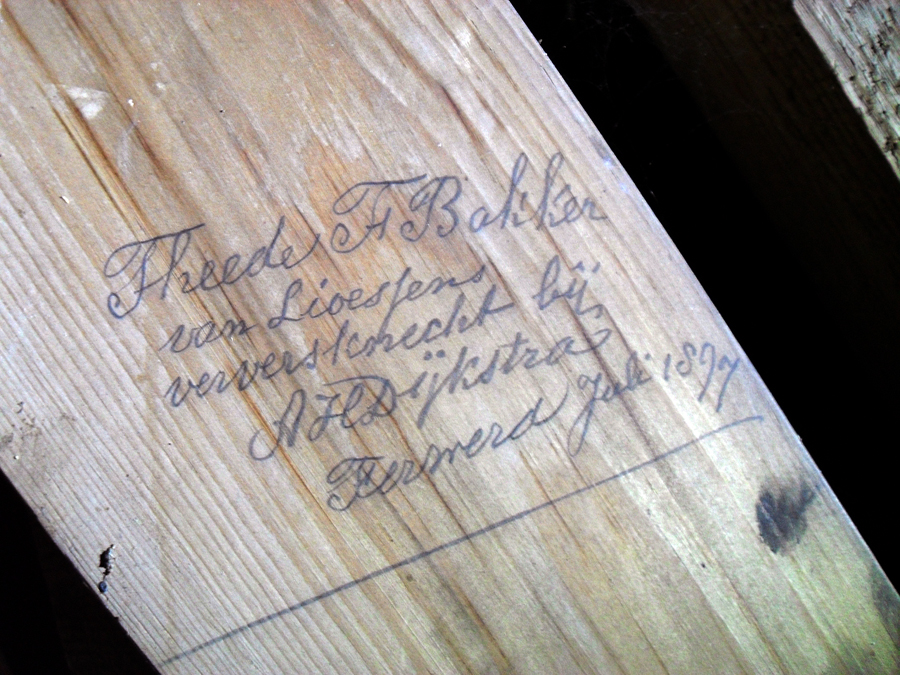 Fheede F Bakker
van Lioessens
ververs knecht bij
A H Dijkstra
Ferwerd Juli 1897